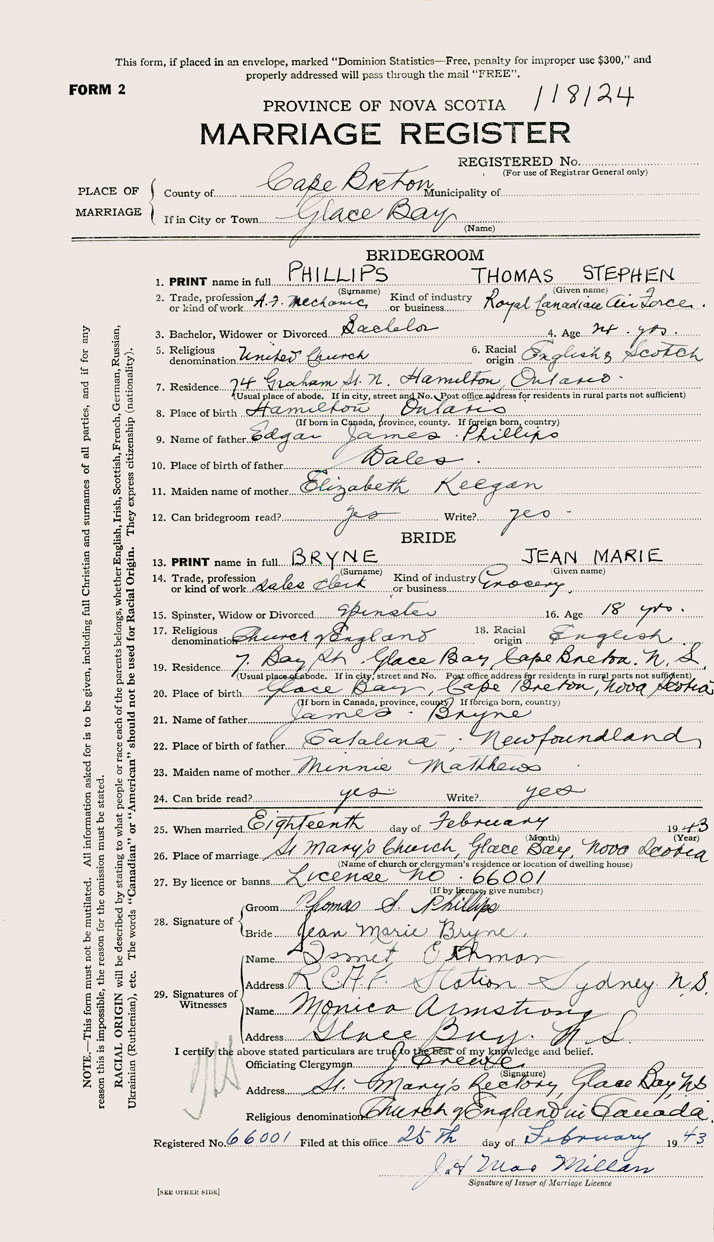 This form, if placed in an envelope, marked "Dominion Statistics—Free, penalty for improper use $300," and
properly addressed will pass through the mail "FREE".
FORM 2
PROVINCE OF NOVA SCOTIA 118124
MARRIAGE REGISTER
REGISTERED No.
(For use of Registrar General only)
PLACE OF MARRIAGE
County of Cape Breton Municipality of
If in City or Town Glace Bay
(Name)
BRIDEGROOM
1. PRINT name in full PHILLIPS THOMAS STEPHEN
(Surname) (Given name)
2. Trade, profession or kind of work A.F. Mechanic Kind of industry or business Royal Canadian Air Force.
3. Bachelor, Widower or Divorced Bachelor 4. Age 24 yrs.
5. Religious denomination United Church 6. Racial origin English & Scotch
7. Residence 74 Graham St. N. Hamilton, Ontario
(Usual place of abode. If in city, street and No. Post office address for residents in rural parts not sufficient)
8. Place of birth Hamilton, Ontario
(If born in Canada, province, county. If foreign born, country)
9. Name of father Edgar James Phillips
10. Place of birth of father Wales.
11. Maiden name of mother Elizabeth Keegan
12. Can bridegroom read? yes Write? yes
BRIDE
13. PRINT name in full BRYNE JEAN MARIE
(Surname) (Given name)
14. Trade, profession or kind of work Sales Clerk Kind of industry or business Grocery.
15. Spinster, Widow or Divorced Spinster 16. Age 18 yrs.
17. Religious denomination Church of England 18. Racial origin English
19. Residence 7. Bay St. Glace Bay, Cape Breton. N.S.
(Usual place of abode. If in city, street and No. Post office address for residents in rural parts not sufficient)
20. Place of birth Glace Bay, Cape Breton, Nova Scotia
(If born in Canada, province, county? If foreign born, country)
21. Name of father James Bryne
22. Place of birth of father Catalina, Newfoundland
23. Maiden name of mother Minnie Matthews
24. Can bride read? yes Write? yes
25. When married Eighteenth day of February 1943
(Month) (Year)
26. Place of marriage St Mary's Church, Glace Bay, Nova Scotia
(Name of church or clergyman's residence or location of dwelling house)
27. By licence or banns License No. 66001
(If by licence, give number)
28. Signature of
Groom Thomas S. Phillips
Bride Jean Marie Bryne.
29. Signatures of Witnesses
Name
Address R.C.A.F. Station Sydney N.S.
Name Monica Armstrong
Address Glace Bay. N.S.
I certify the above stated particulars are true to the best of my knowledge and belief.
Officiating Clergyman
(Signature)
Address St. Mary's Rectory, Glace Bay, NS
Religious denomination Church of England in Canada.
Registered No. 66001 Filed at this office 25th day of February 1943
Mac Millan
Signature of Issuer of Marriage Licence
[SEE OTHER SIDE]
NOTE.—This form must not be mutilated. All information asked for is to be given, including full Christian and surnames of all parties, and if for any
reason this is impossible, the reason for the omission must be stated.
RACIAL ORIGIN will be described by stating to what people or race each of the parents belongs, whether English, Irish, Scottish, French, German, Russian,
Ukrainian (Ruthenian), etc. The words "Canadian" or "American" should not be used for Racial Origin. They express citizenship (nationality).